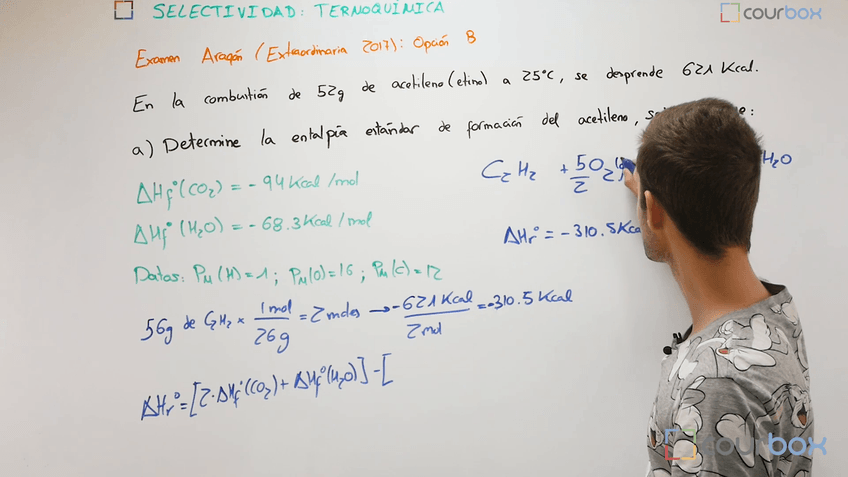 SELECTIVIDAD: TERMOQUÍMICA
courbox
Examen Aragón (Extraordinaria 2017): Opción B
En la combustión de 52g de acetileno (etino) a 25°C, se desprende 621 Kcal.
a) Determine la entalpía estándar de formación del acetileno,
C₂H₂ + 5/2 O₂(g) H₂O
ΔHf°(CO₂) = -94 Kcal/mol
ΔHr° = -310.5 Kca
ΔHf°(H₂O) = -68.3 Kcal/mol
Datos: Pm(H)=1; Pm(O)=16; Pm(C)=12
56g de C₂H₂ × 1mol/26g = 2 moles → -621 Kcal/2mol = -310.5 Kcal
ΔHr° = [2·ΔHf°(CO₂) + ΔHf°(H₂O)] - [
courbox